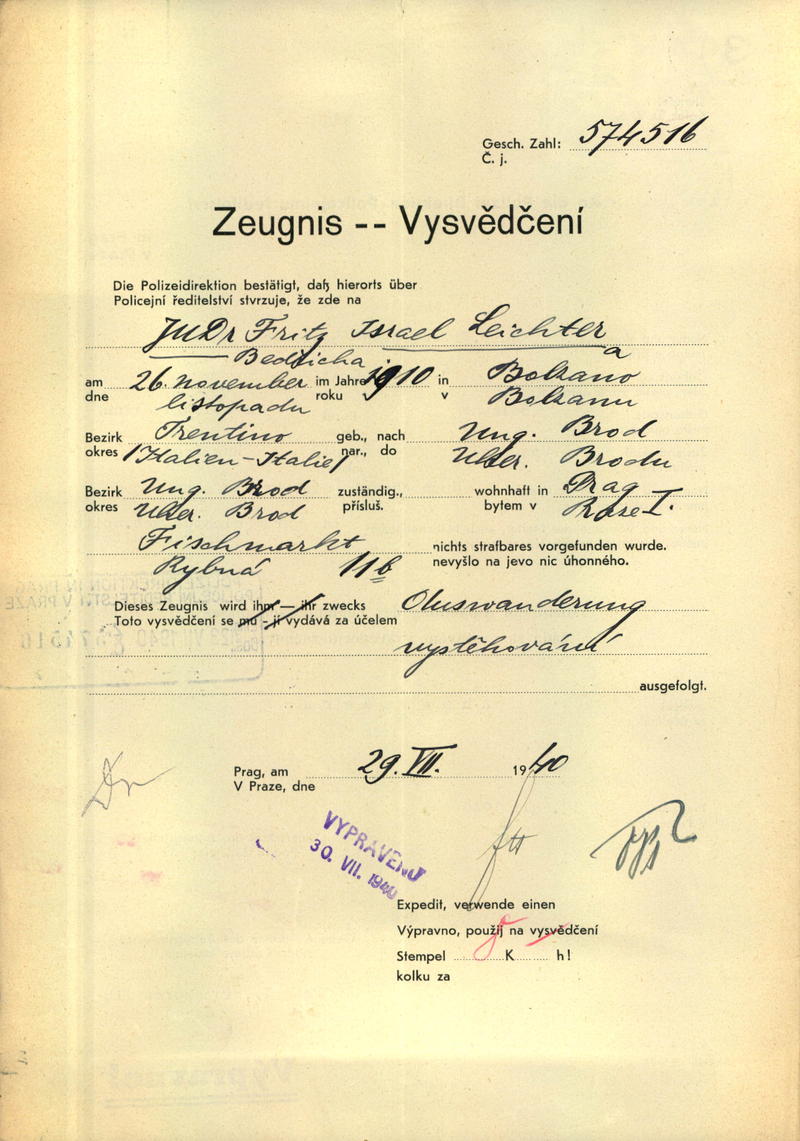 Gesch. Zahl: 574516
Č. j.
Zeugnis -- Vysvědčení
Die Polizeidirektion bestätigt, daß hierorts über
Policejní ředitelství stvrzuje, že zde na
JUDr Fritz Israel Leichter
Bedřicha a
am 26. november im Jahre 1910 in Bolzano
dne listopadu roku v Bolzanu
Bezirk Trentino geb., nach Ung. Brod
okres /Italien-Italie/ nar., do Uher. Brodu
Bezirk Ung. Brod zuständig., wohnhaft in Prag
okres Uher. Brod přísluš. bytem v Praze I.
Fischmarkt nichts strafbares vorgefunden wurde.
Rybná 11b nevyšlo na jevo nic úhonného.
Dieses Zeugnis wird ihm — ihr zwecks Auswanderung
Toto vysvědčení se mu - jí vydává za účelem
vystěhování
ausgefolgt.
Prag, am 29. VII. 1940
V Praze, dne
Dr
VYPRAVENO
30. VII. 1940
Expedit, verwende einen
Výpravno, použij na vysvědčení
Stempel K h!
kolku za